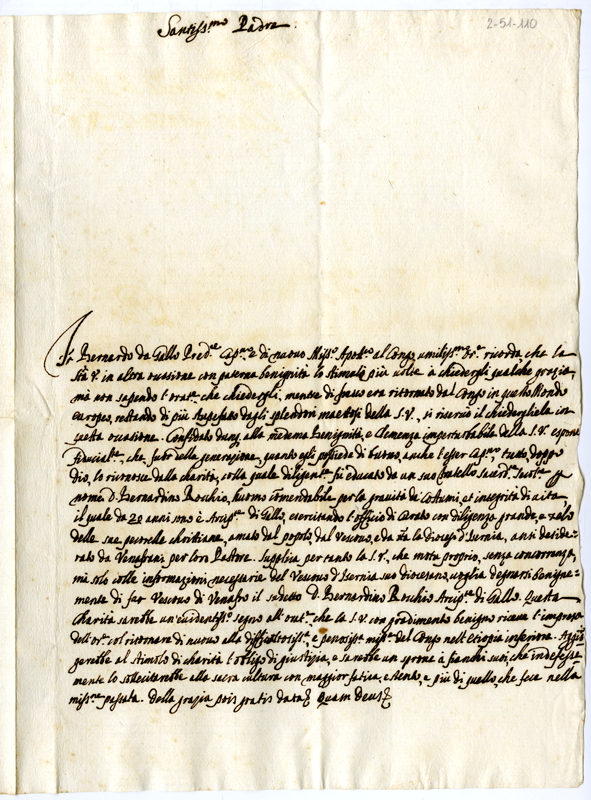 Santiss.mo Padre.
2-51-110
Fr. Bernardo da Gallo Pred.re Cap.no e di nuovo Miss.o Apost.co al Congo umiliss.mo Or.e ricorda, che la
Stà V. in altra occasione con paterna benignità lo stimolò più volte à chiedergli qualche grazia,
mà non sapendo l'orat.e che chiedergli, mentre di fresco era ritornato dal Congo in questo Mondo
europeo, restando di più dagli splendori maestosi della S.V., si riservò il chiedergliela in
questa occasione. Confidato dunq. alla medema Benignità, e Clemenza imperturbabile della S.V. espone
fiducial.te, che fuor della generazione, quanto egli possiede di buono, anche l'esser Cap.no tutto, doppo
dio, lo riconosce dalla charità, colla quale diligen.te fù educato da un suo fratello sacerd.e
nome D. Bernardino Rocchio, huomo comendabile per la gravità de Costumi, et integrità di vita
il quale da 20 anni sono è Arcip.te di Gallo, esercitando l'officio di Curato con diligenza grande, e zelo
delle sue pecorelle christiane, amato dal popolo, dal Vescovo, e da tta la diocesi d'Isernia, anzi deside-
rato da Venafrani per loro Pastore. Supplica per tanto la S.V., che motu proprio, senza concorrenza,
mà solo colle informazioni necessarie del Vescovo d'Isernia suo diocesano, voglia degnarsi benigne=
mente di far Vescovo di Venafro il sudetto D. Bernardino Rocchio Arcip.te di Gallo. Questa
charità sarebbe un'evidentiss.o segno all'orat.e, che la S.V. con gradimento benigno riceve l'impresa
dell'or.e col ritornare di nuovo alla difficoltosiss.a, e penosiss.a miss.ne del Congo nell'Etiopia inferiore. Aggiu
gerebbe al stimolo di charità l'obligo di giustizia, e sarebbe un sprone à fianchi suoi, che indefesse
mente lo sollecitarebbe alla sacra cultura con maggior fatica, e stento, e più di quello, che fece nella
miss.ne passata. Della grazia gratis data quam Deus